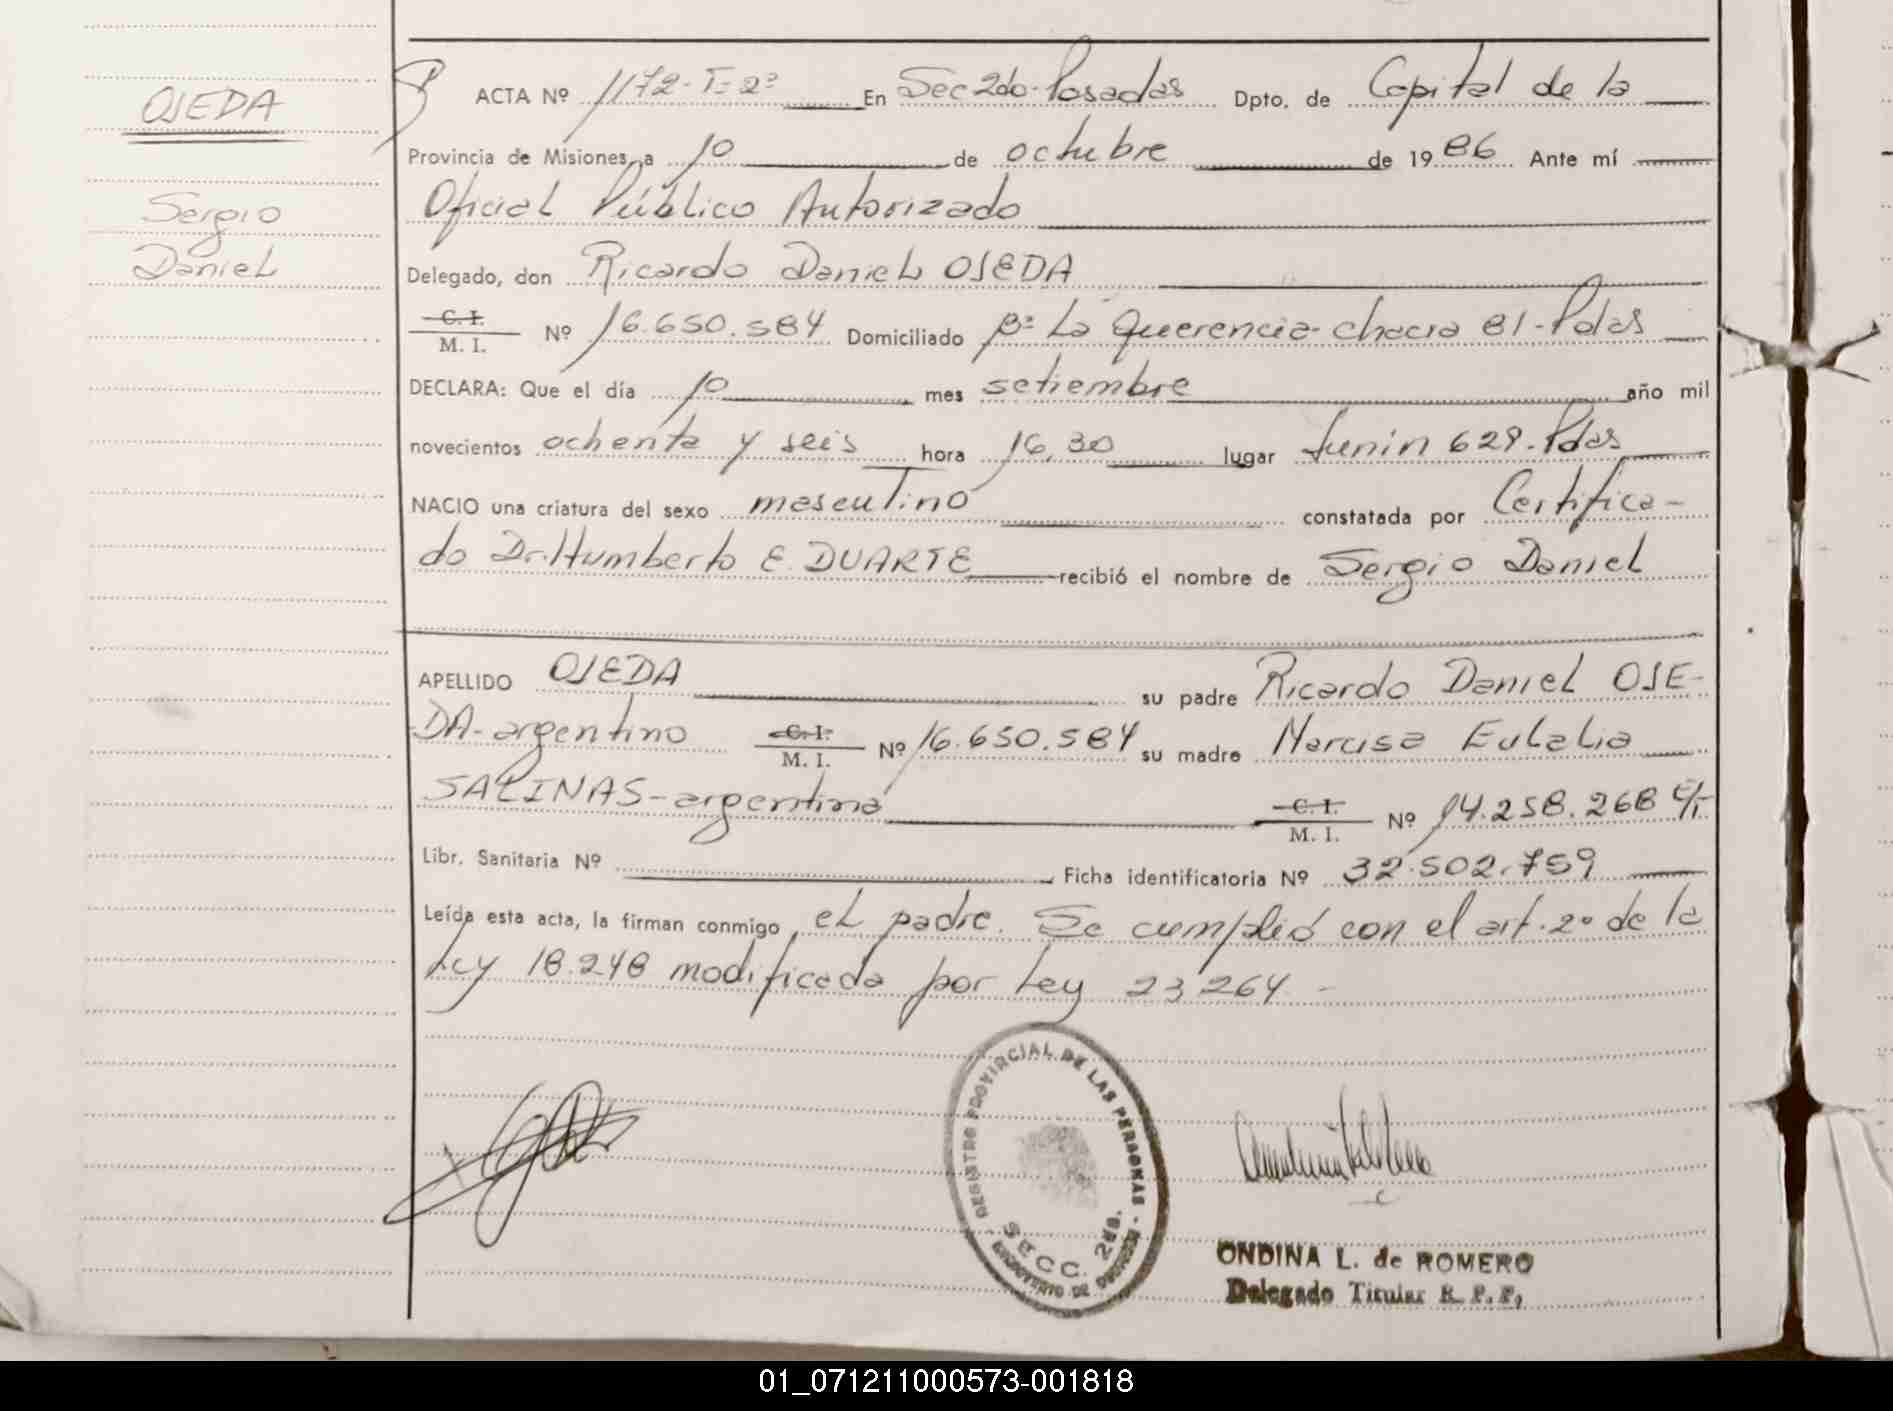 OJEDA
Sergio
Daniel
ACTA Nº 1172-T=2º En Sec 2do-Posadas Dpto. de Capital de la
Provincia de Misiones, a 10 de octubre de 1986 Ante mí
Oficial Público Autorizado
Delegado, don Ricardo Daniel OJEDA
C. I.
M. I. Nº 16.650.584 Domiciliado Bº La Querencia-chacra 81-Pdas
DECLARA: Que el día 10 mes setiembre año mil
novecientos ochenta y seis hora 16,30 lugar Junin 629-Pdas
NACIO una criatura del sexo masculino constatada por Certifica-
do Dr. Humberto E. DUARTE recibió el nombre de Sergio Daniel
APELLIDO OJEDA su padre Ricardo Daniel OJE-
DA-argentino C. I. M. I. Nº 16.650.584 su madre Narcisa Eulalia
SALINAS-argentina C. I. M. I. Nº 14.258.268
Libr. Sanitaria Nº Ficha identificatoria Nº 32.502.759
Leída esta acta, la firman conmigo, el padre. Se cumplió con el art. 2º de la
Ley 18.248 modificada por Ley 23264-
REGISTRO PROVINCIAL DE LAS PERSONAS
SECC. 2da.
ONDINA L. de ROMERO
Delegado Titular R. P. P.
01_071211000573-001818